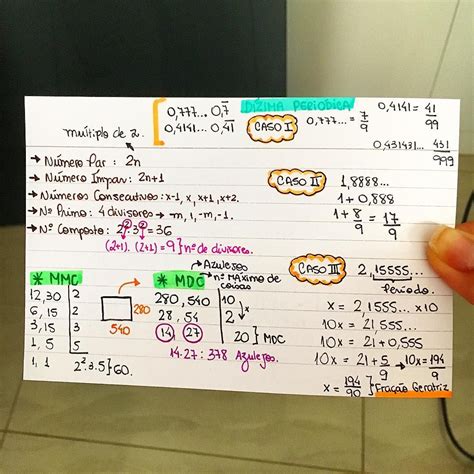 DÍZIMA PERIÓDICA
0,777... 0,7̅
0,4141... 0,4̅1̅
CASO I
0,777... = 7/9
0,4141 = 41/99
0,431431... 431/999
múltiplo de 2.
→ Número Par: 2n
→ Número Impar: 2n+1
→ Números Consecutivos: x-1, x, x+1, x+2.
→ Nº Primo: 4 divisores → m, 1, -m, -1.
→ Nº Composto: 2².3² = 36
(2+1).(2+1) = 9 } nº de divisores.
CASO II
1,8888...
1 + 0,888
1 + 8/9 = 17/9
* MMC
12, 30 | 2
6, 15 | 2
3, 15 | 3
1, 5 | 5
1, 1 | 2².3.5 } 60.
280
540
* MDC
→ Azulejos
→ nº máximo de coisas
280, 540 | 10
28, 54 | 2 ↓x
14, 27 | 20 } MDC
14.27 : 378 Azulejos.
CASO III
2,15555...
Período.
x = 2,1555... x10
10x = 21,555...
10x = 21 + 0,555
10x = 21 + 5/9 → 10x = 194/9
x = 194/90 } Fração Geratriz